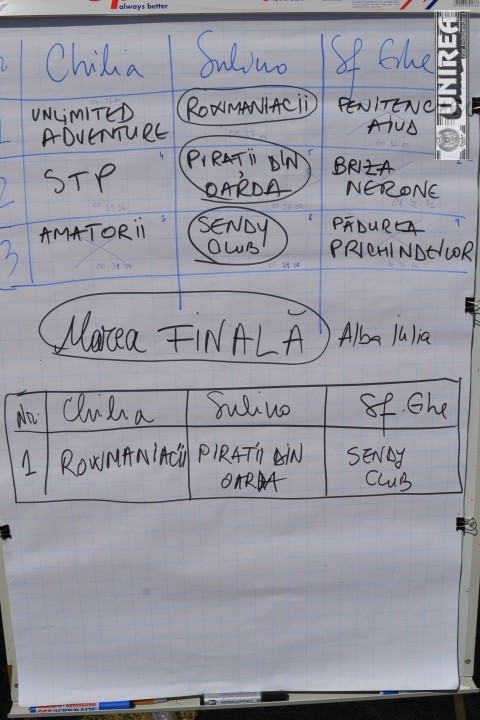 always better
UNIREA
Chilia Sulina Sf Ghe
1 UNLIMITED ADVENTURE ROWMANIACII PENITENC AIUD
2 STP PIRAȚII DIN OARDA BRIZA NERONE
3 AMATORII SENDY CLUB PĂDUREA PRICHINDEILOR
Marea FINALĂ Alba Iulia
No. Chilia Sulina Sf. Ghe
1 ROWMANIACII PIRAȚII DIN OARDA SENDY CLUB